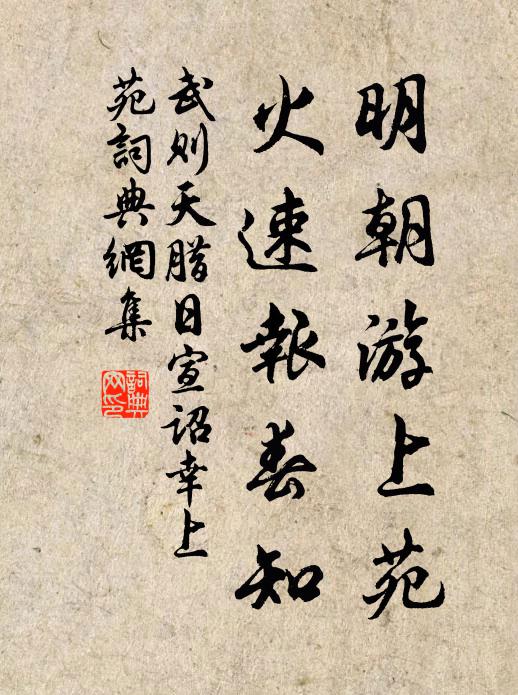 明朝游上苑
火速報春知
武則天臘日宣詔幸上
苑詞典網集
詞典
网印